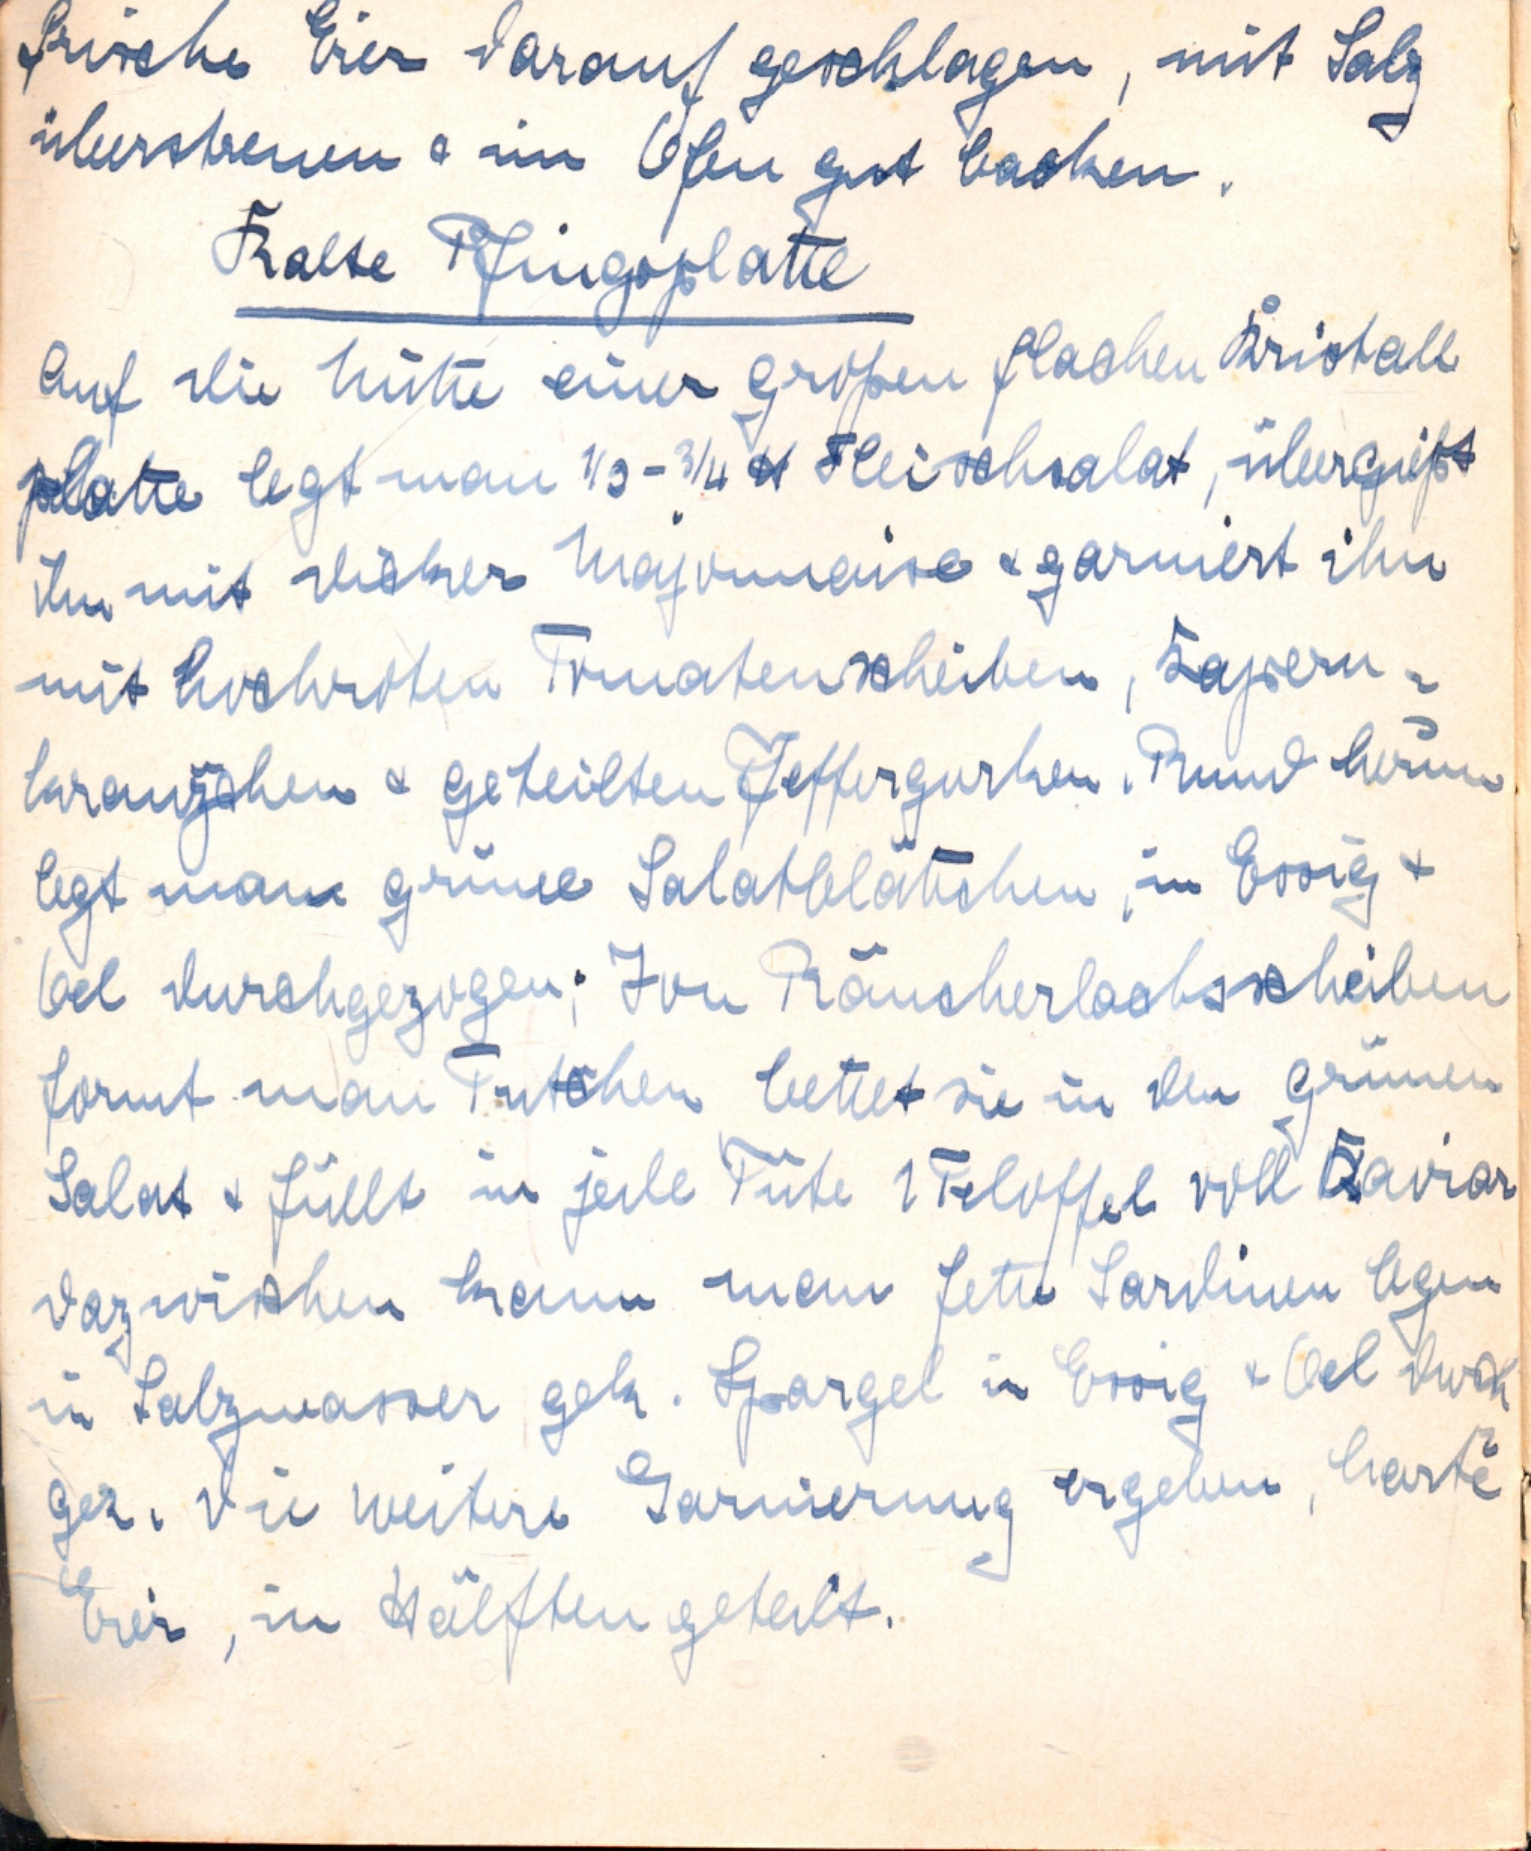 frische Eier darauf geschlagen, mit Salz
überstreuen & im Ofen gut backen.
Kalte Pfingsplatte
Auf die Mitte einer großen flachen Kristall
platte legt man 1/2 - 3/4 ℔ Fleischsalat, übergießt
ihn mit dicker Majonnaise & garniert ihn
mit hochroten Tomatenscheiben, Kapern-
kränzchen & geteilten Pfeffergurken. Rund herum
legt man grüne Salatblättchen, in Essig &
Oel durchgezogen; Von Räucherlachsscheiben
formt man Tütchen bettet sie in den grünen
Salat & füllt in jede Tüte 1 Teloffel voll Kaviar
dazwischen kann man fette Sardinen legen
in Salzwasser gek. Spargel in Essig & Oel durch
gez. die weitere Garnierung ergeben, harte
Eier, in Hälften geteilt.